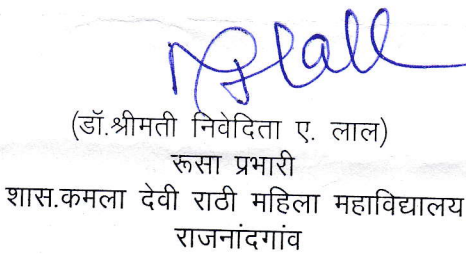 (डॉ.श्रीमती निवेदिता ए. लाल)
रूसा प्रभारी
शास.कमला देवी राठी महिला महाविद्यालय
राजनांदगांव